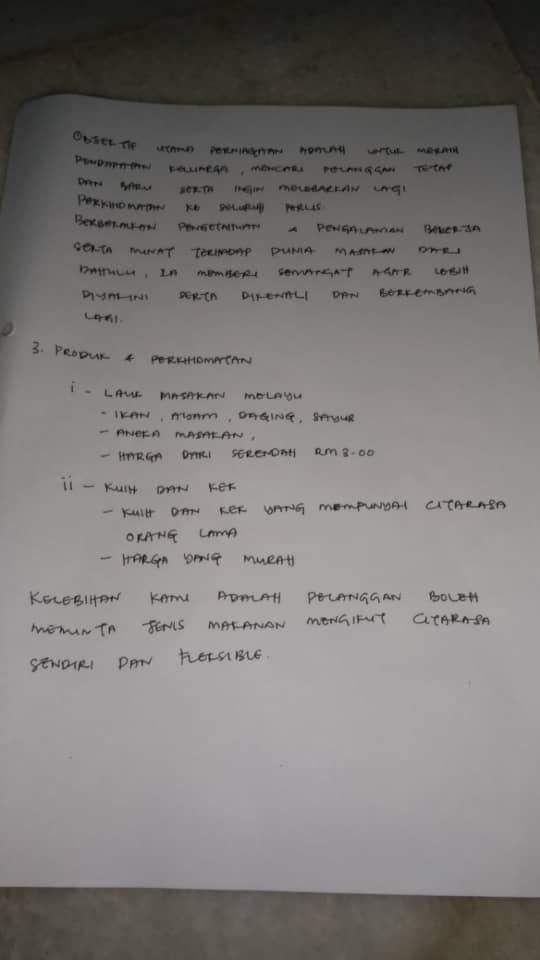 OBJEKTIF UTAMA PERNIAGAAN ADALAH UNTUK MERAIH
PENDAPATAN KELUARGA, MENCARI PELANGGAN TETAP
DAN BARU SERTA INGIN MELEBARKAN LAGI
PERKHIDMATAN KE SELURUH PERLIS.
BERBEKALKAN PENGETAHUAN & PENGALAMAN BEKERJA
SERTA MINAT TERHADAP DUNIA MASAKAN DARI
DAHULU, IA MEMBERI SEMANGAT AGAR LEBIH
DIYAKINI SERTA DIKENALI DAN BERKEMBANG
LAGI.
3. PRODUK & PERKHIDMATAN
i - LAUK MASAKAN MELAYU
- IKAN, AYAM, DAGING, SAYUR
- ANEKA MASAKAN,
- HARGA DARI SERENDAH RM 3.00
ii - KUIH DAN KEK
- KUIH DAN KEK YANG MEMPUNYAI CITARASA
ORANG LAMA
- HARGA YANG MURAH
KELEBIHAN KAMI ADALAH PELANGGAN BOLEH
MEMINTA JENIS MAKANAN MENGIKUT CITARASA
SENDIRI DAN FLEKSIBLE.